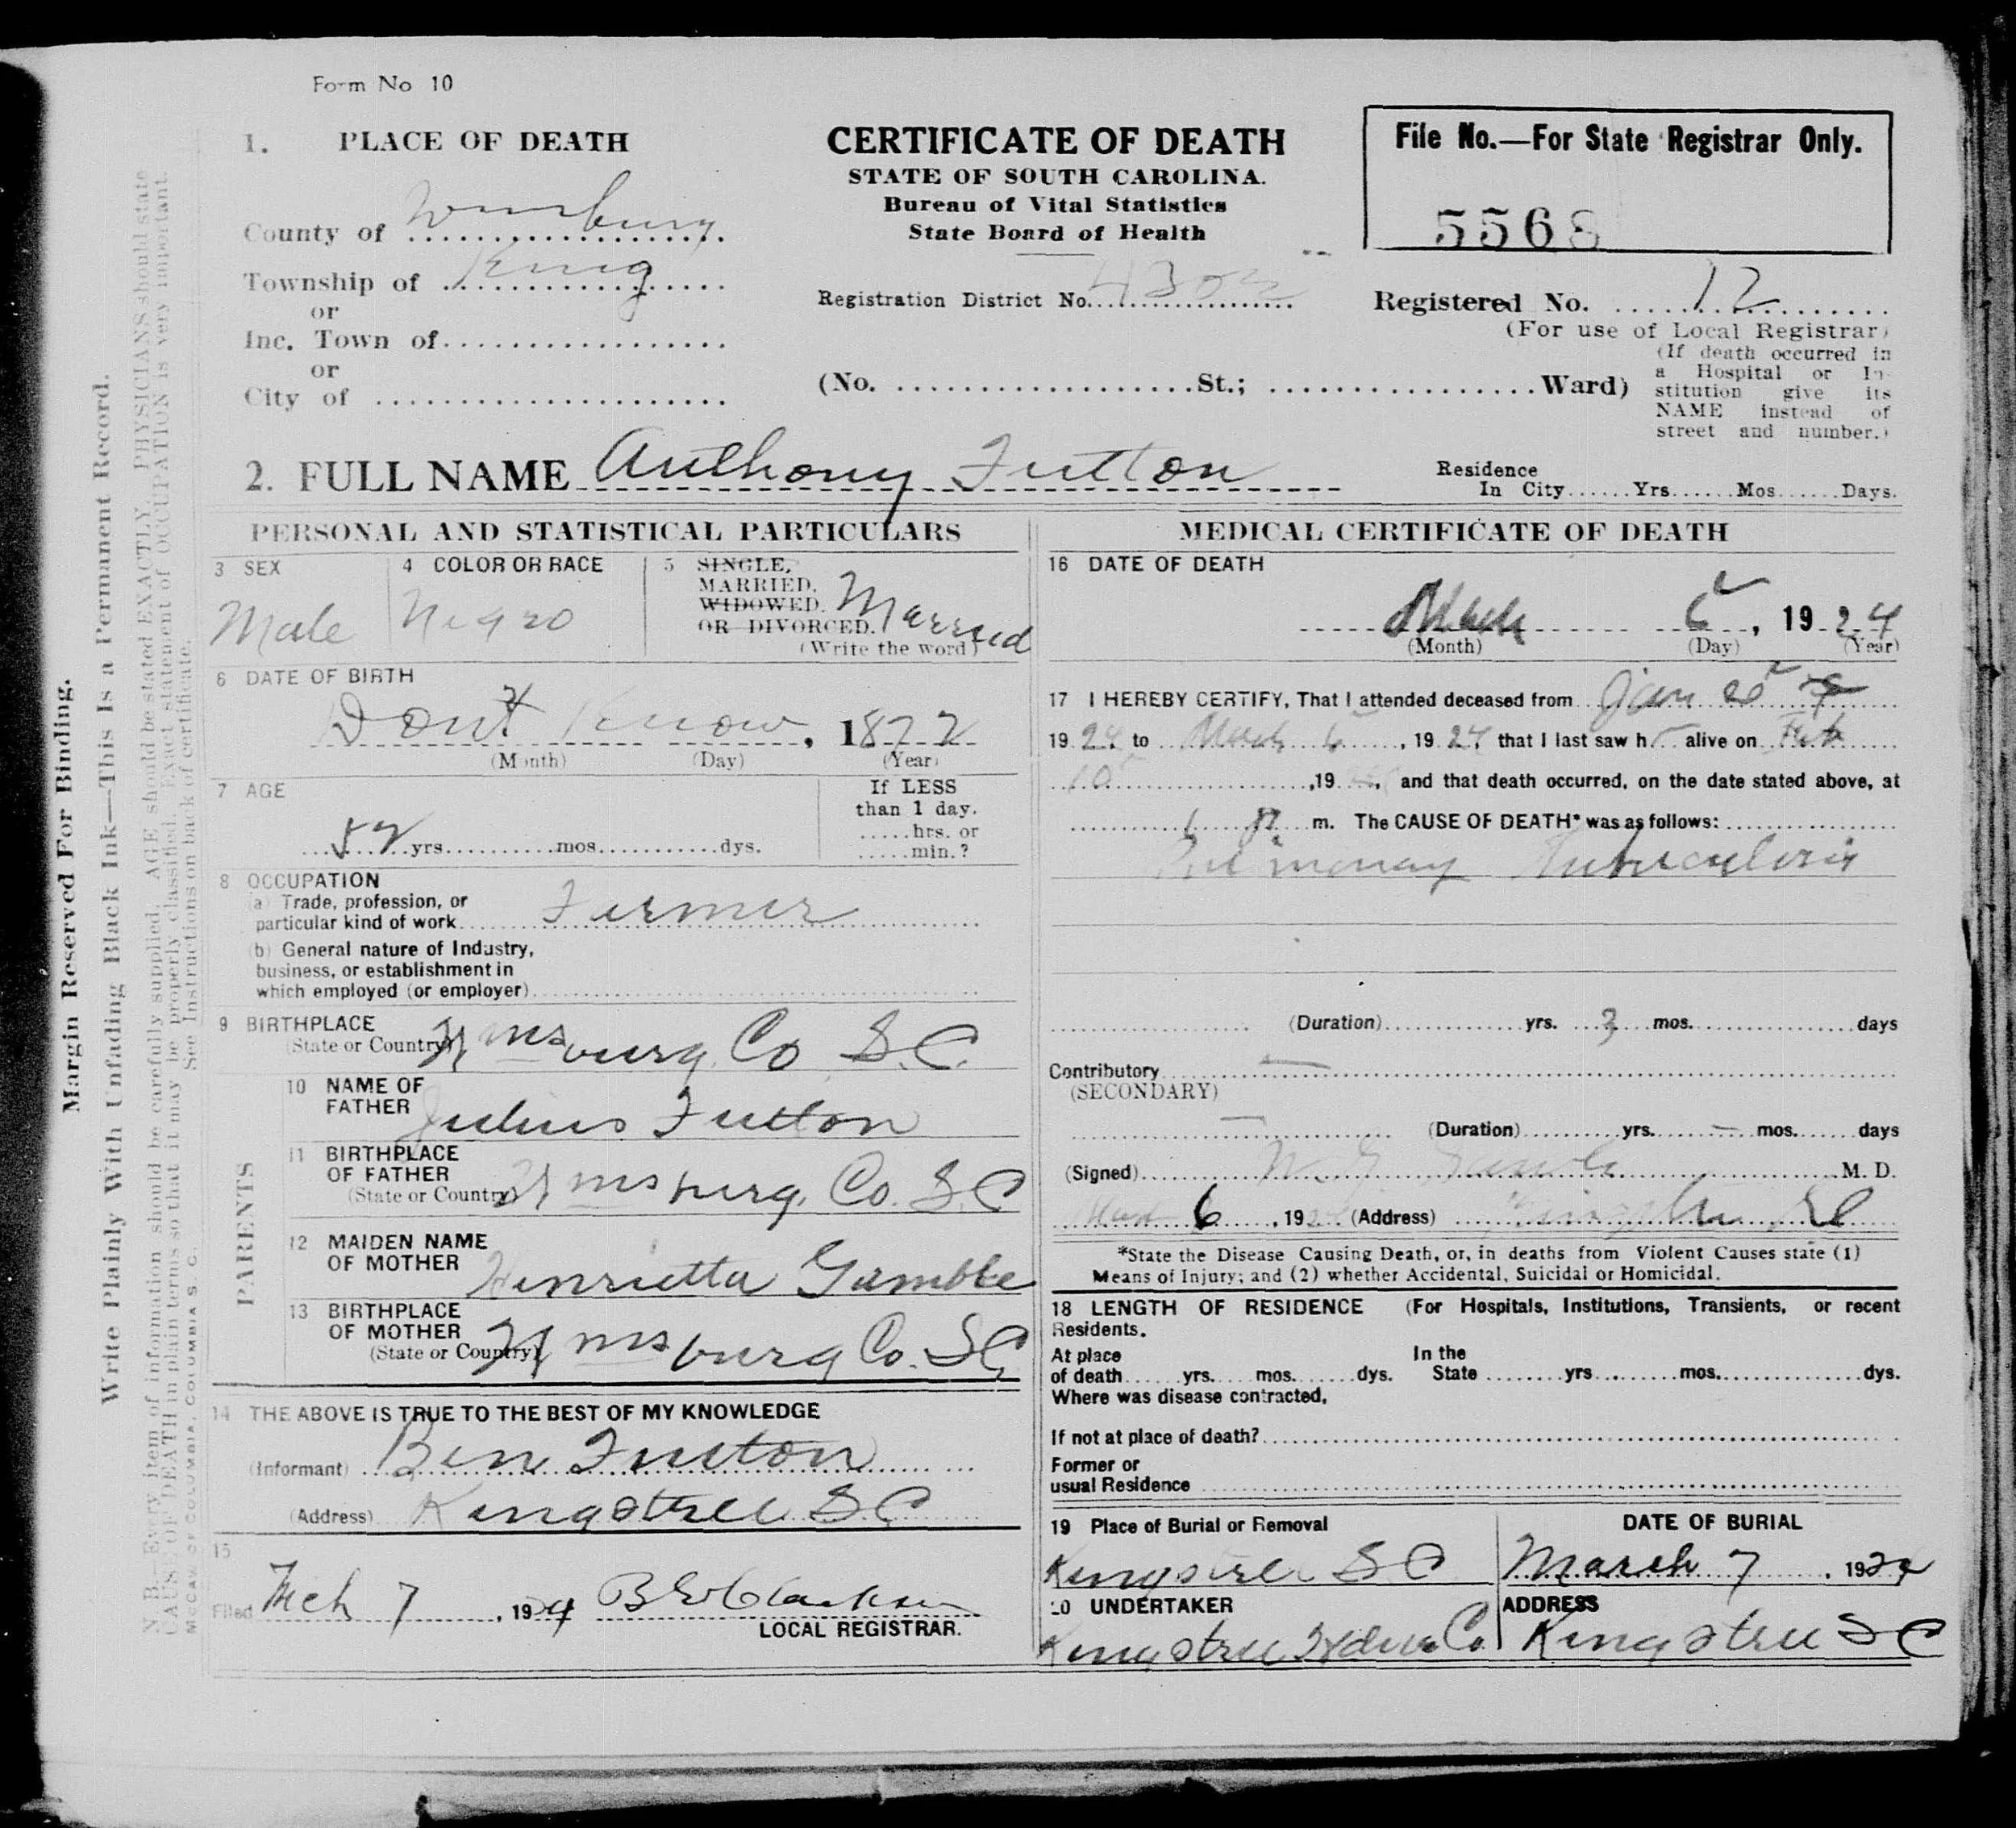 Form No 10
1. PLACE OF DEATH
County of Wmsburg
Township of King
or
Inc. Town of
or
City of
CERTIFICATE OF DEATH
STATE OF SOUTH CAROLINA.
Bureau of Vital Statistics
State Board of Health
Registration District No.
(No. St.; Ward)
File No.—For State Registrar Only.
5568
Registered No. 12
(For use of Local Registrar)
(If death occurred in
a Hospital or In-
stitution give its
NAME instead of
street and number.)
2. FULL NAME Anthony Fulton
Residence
In City......Yrs......Mos......Days.
PERSONAL AND STATISTICAL PARTICULARS
3 SEX
Male
4 COLOR OR RACE
Negro
5 SINGLE,
MARRIED,
WIDOWED,
OR DIVORCED. Married
(Write the word)
6 DATE OF BIRTH
Dont Know, 1872
(Month) (Day) (Year)
7 AGE
52 yrs. mos. dys.
If LESS
than 1 day.
hrs. or
min.?
8 OCCUPATION
(a) Trade, profession, or
particular kind of work Farmer
(b) General nature of Industry,
business, or establishment in
which employed (or employer)
9 BIRTHPLACE
(State or Country) Wmsburg Co S.C.
PARENTS
10 NAME OF
FATHER Julius Fulton
11 BIRTHPLACE
OF FATHER
(State or Country) Wmsburg Co. S.C
12 MAIDEN NAME
OF MOTHER Henrietta Gamble
13 BIRTHPLACE
OF MOTHER
(State or Country) Wmsburg Co. S.C
14 THE ABOVE IS TRUE TO THE BEST OF MY KNOWLEDGE
(Informant) Ben Fulton
(Address) Kingstree S C
15
Filed Mch 7, 1924
LOCAL REGISTRAR.
MEDICAL CERTIFICATE OF DEATH
16 DATE OF DEATH
March 6, 1924
(Month) (Day) (Year)
17 I HEREBY CERTIFY, That I attended deceased from Jan 20
1924, to March 6, 1924, that I last saw h alive on Feb
10, 19 , and that death occurred, on the date stated above, at
m. The CAUSE OF DEATH* was as follows:
Pulmonary Tuberculosis
(Duration) yrs. 3 mos. days
Contributory
(SECONDARY)
(Duration) yrs. mos. days
(Signed) M. D.
6, 192 (Address) S C
*State the Disease Causing Death, or, in deaths from Violent Causes state (1)
Means of Injury; and (2) whether Accidental, Suicidal or Homicidal.
18 LENGTH OF RESIDENCE (For Hospitals, Institutions, Transients, or recent
Residents.
At place
of death yrs. mos. dys.
In the
State yrs. mos. dys.
Where was disease contracted,
If not at place of death?
Former or
usual Residence
19 Place of Burial or Removal
Kingstree S C
DATE OF BURIAL
March 7, 1924
20 UNDERTAKER
Kingstree Hdwe Co.
ADDRESS
Kingstree S C
Margin Reserved For Binding.
Write Plainly With Unfading Black Ink—This Is a Permanent Record.
N. B.—Every item of information should be carefully supplied. AGE should be stated EXACTLY. PHYSICIANS should state
CAUSE OF DEATH in plain terms so that it may be properly classified. Exact statement of OCCUPATION is very important.
See Instructions on back of certificate.
McCAW OF COLUMBIA, COLUMBIA S. C.